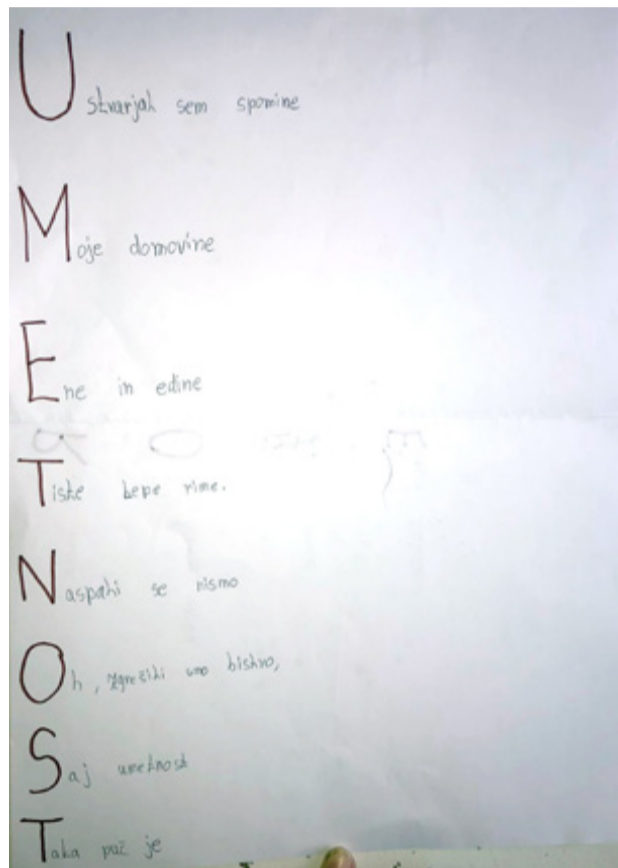 Ustvarjal sem spomine
Moje domovine
Ene in edine
Tiste lepe rime.
Naspali se nismo
Oh, zgrešili smo bistvo,
Saj umetnost
Taka pač je